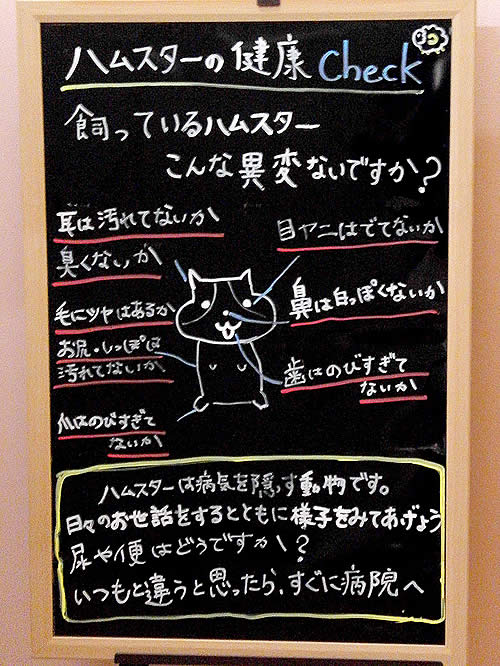 ハムスターの健康Check
飼っているハムスター
こんな異変ないですか?
耳は汚れてないか
臭くないか
毛にツヤはあるか
お尻・しっぽは
汚れてないか
爪はのびすぎて
ないか
目ヤニはでてないか
鼻は白っぽくないか
歯はのびすぎて
ないか
ハムスターは病気を隠す動物です。
日々のお世話をするとともに様子をみてあげよう
尿や便はどうですか?
いつもと違うと思ったら、すぐに病院へ